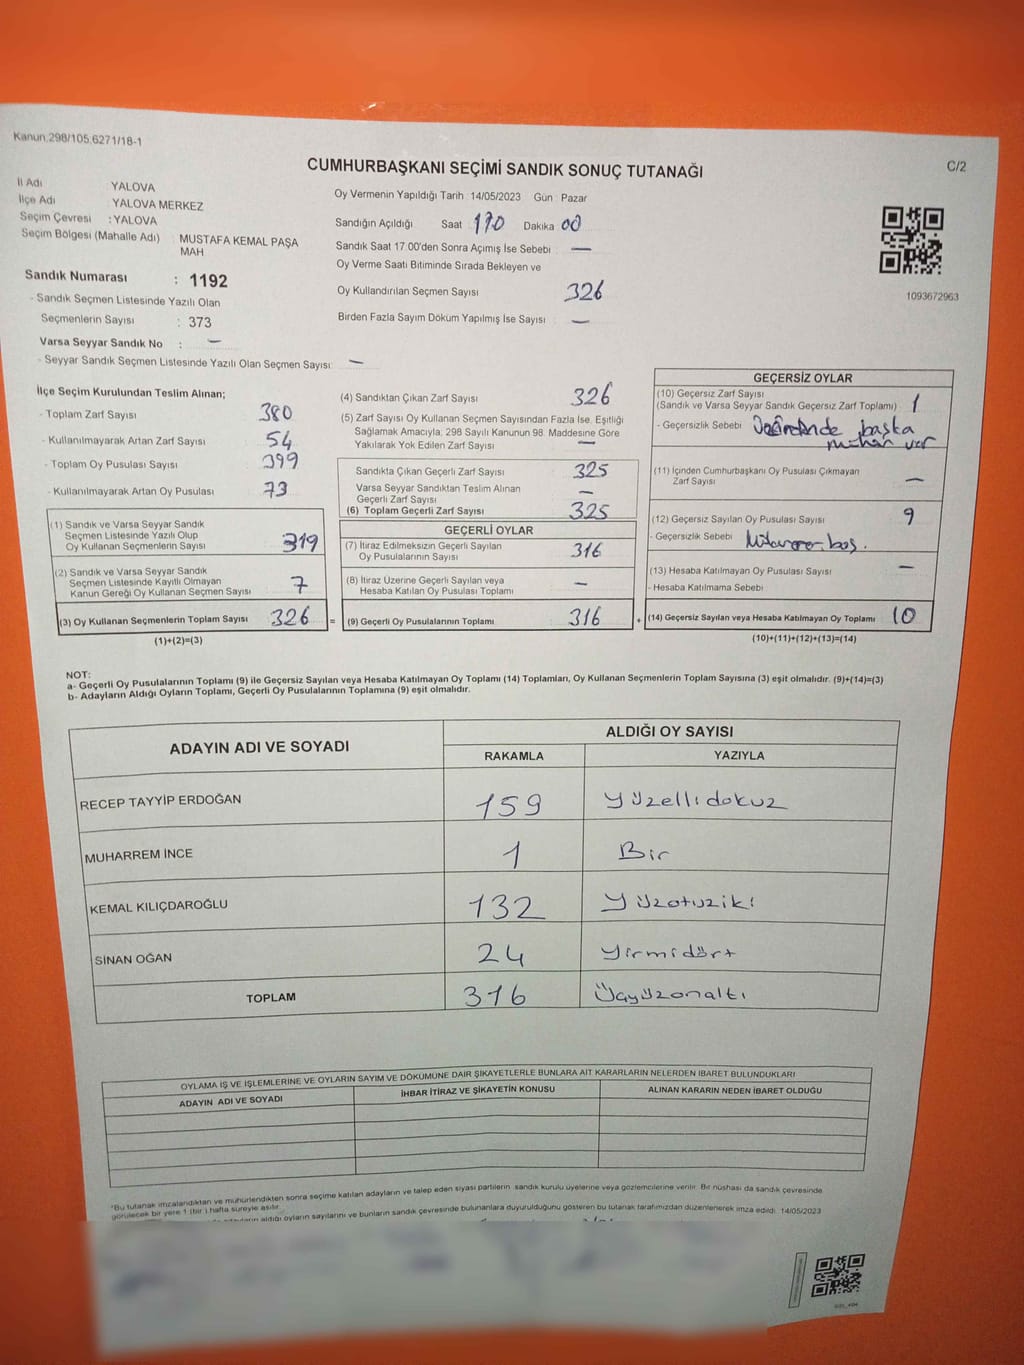 Kanun:298/105,6271/18-1
CUMHURBAŞKANI SEÇİMİ SANDIK SONUÇ TUTANAĞI
C/2
İl Adı YALOVA
İlçe Adı YALOVA MERKEZ
Seçim Çevresi : YALOVA
Seçim Bölgesi (Mahalle Adı) MUSTAFA KEMAL PAŞA MAH
Sandık Numarası : 1192
- Sandık Seçmen Listesinde Yazılı Olan
Seçmenlerin Sayısı : 373
Varsa Seyyar Sandık No : —
- Seyyar Sandık Seçmen Listesinde Yazılı Olan Seçmen Sayısı: —
Oy Vermenin Yapıldığı Tarih 14/05/2023 Gün : Pazar
Sandığın Açıldığı Saat 170 Dakika 00
Sandık Saat 17.00'den Sonra Açımış İse Sebebi —
Oy Verme Saati Bitiminde Sırada Bekleyen ve
Oy Kullandırılan Seçmen Sayısı 326
Birden Fazla Sayım Döküm Yapılmış İse Sayısı —
1093672963
İlçe Seçim Kurulundan Teslim Alınan;
- Toplam Zarf Sayısı 380
- Kullanılmayarak Artan Zarf Sayısı 54
- Toplam Oy Pusulası Sayısı 399
- Kullanılmayarak Artan Oy Pusulası 73
(1) Sandık ve Varsa Seyyar Sandık
Seçmen Listesinde Yazılı Olup
Oy Kullanan Seçmenlerin Sayısı 319
(2) Sandık ve Varsa Seyyar Sandık
Seçmen Listesinde Kayıtlı Olmayan
Kanun Gereği Oy Kullanan Seçmen Sayısı 7
(3) Oy Kullanan Seçmenlerin Toplam Sayısı 326 =
(1)+(2)=(3)
(4) Sandıktan Çıkan Zarf Sayısı 326
(5) Zarf Sayısı Oy Kullanan Seçmen Sayısından Fazla İse, Eşitliği
Sağlamak Amacıyla, 298 Sayılı Kanunun 98. Maddesine Göre
Yakılarak Yok Edilen Zarf Sayısı —
Sandıkta Çıkan Geçerli Zarf Sayısı 325
Varsa Seyyar Sandıktan Teslim Alınan
Geçerli Zarf Sayısı —
(6) Toplam Geçerli Zarf Sayısı 325
GEÇERLİ OYLAR
(7) İtiraz Edilmeksizin Geçerli Sayılan
Oy Pusulalarının Sayısı 316
(8) İtiraz Üzerine Geçerli Sayılan veya
Hesaba Katılan Oy Pusulası Toplamı —
(9) Geçerli Oy Pusulalarının Toplamı 316 +
GEÇERSİZ OYLAR
(10) Geçersiz Zarf Sayısı
(Sandık ve Varsa Seyyar Sandık Geçersiz Zarf Toplamı) 1
- Geçersizlik Sebebi Üzerinde başka
mühür var
(11) İçinden Cumhurbaşkanı Oy Pusulası Çıkmayan
Zarf Sayısı —
(12) Geçersiz Sayılan Oy Pusulası Sayısı 9
- Geçersizlik Sebebi boş.
(13) Hesaba Katılmayan Oy Pusulası Sayısı —
- Hesaba Katılmama Sebebi
(14) Geçersiz Sayılan veya Hesaba Katılmayan Oy Toplamı 10
(10)+(11)+(12)+(13)=(14)
NOT:
a- Geçerli Oy Pusulalarının Toplamı (9) ile Geçersiz Sayılan veya Hesaba Katılmayan Oy Toplamı (14) Toplamları, Oy Kullanan Seçmenlerin Toplam Sayısına (3) eşit olmalıdır. (9)+(14)=(3)
b- Adayların Aldığı Oyların Toplamı, Geçerli Oy Pusulalarının Toplamına (9) eşit olmalıdır.
ADAYIN ADI VE SOYADI ALDIĞI OY SAYISI
RAKAMLA YAZIYLA
RECEP TAYYİP ERDOĞAN 159 Yüzellidokuz
MUHARREM İNCE 1 Bir
KEMAL KILIÇDAROĞLU 132 Yüzotuziki
SİNAN OĞAN 24 Yirmidört
TOPLAM 316 Üçyüzonaltı
OYLAMA İŞ VE İŞLEMLERİNE VE OYLARIN SAYIM VE DÖKÜMÜNE DAİR ŞİKAYETLERLE BUNLARA AİT KARARLARIN NELERDEN İBARET BULUNDUKLARI
ADAYIN ADI VE SOYADI İHBAR İTİRAZ VE ŞİKAYETİN KONUSU ALINAN KARARIN NEDEN İBARET OLDUĞU
*Bu tutanak imzalandıktan ve mühürlendikten sonra seçime katılan adayların ve talep eden siyasi partilerin sandık kurulu üyelerine veya gözlemcilerine verilir. Bir nüshası da sandık çevresinde
görülecek bir yere 1 (bir) hafta süreyle asılır.
aldığı oyların sayılarını ve bunların sandık çevresinde bulunanlara duyurulduğunu gösteren bu tutanak tarafımızdan düzenlenerek imza edildi. 14/05/2023